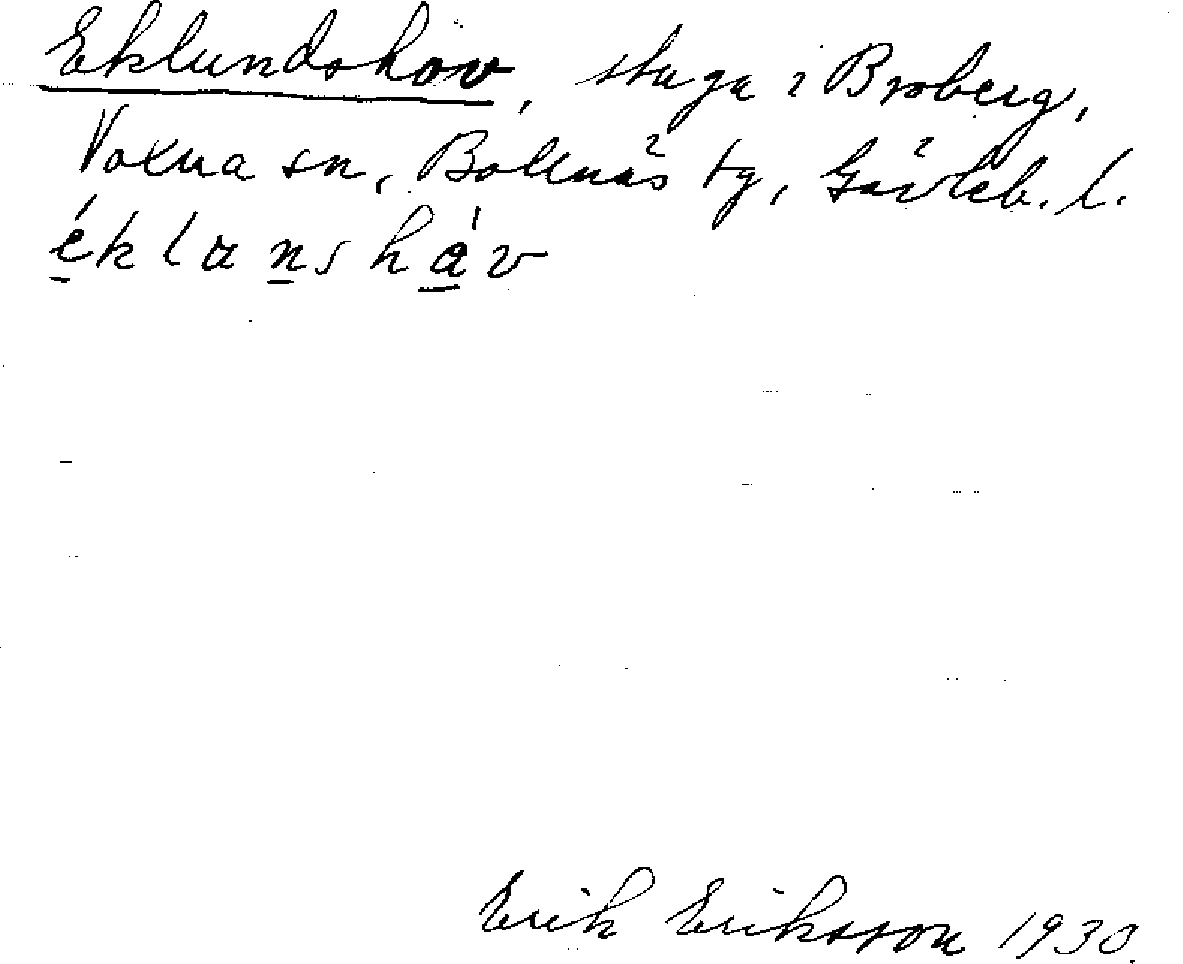 Eklundshov, stuga i Broberg,
Voxna sn, Bollnäs tg, Gävleb. l.
éklansháv
Erik Eriksson 1930.